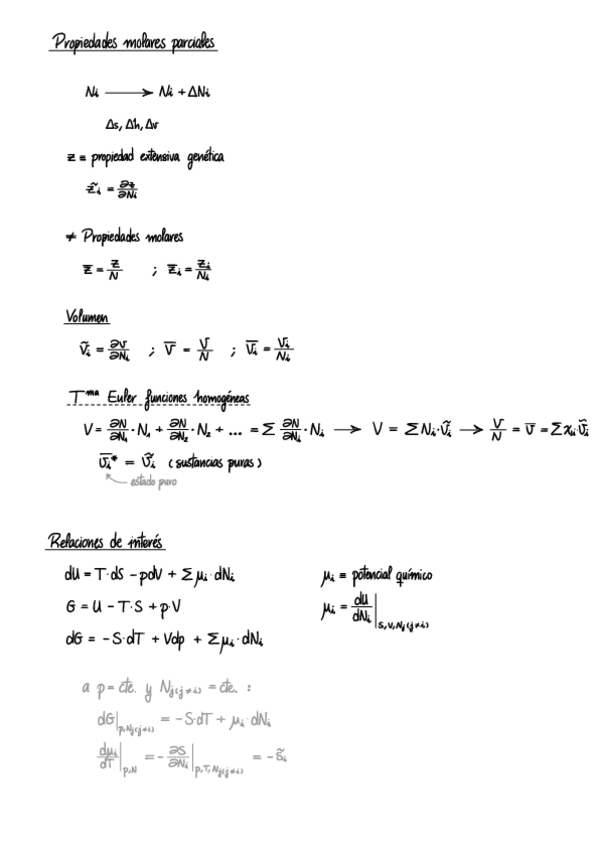 Propiedades molares parciales
Ni ⟶ Ni + ΔNi
Δs, Δh, Δv
z ≡ propiedad extensiva genética
z̃i = ∂z/∂Ni
≠ Propiedades molares
z̄ = z/N ; z̄i = zi/Ni
Volumen
ṽi = ∂v/∂Ni ; v̄ = V/N ; v̄i = Vi/Ni
Tma Euler funciones homogéneas
V = ∂N/∂N1 · N1 + ∂N/∂N2 · N2 + ... = Σ ∂N/∂Ni · Ni ⟶ V = ΣNi·ṽi ⟶ V/N = v̄ = Σxi·ṽi
v̄i* = ṽi (sustancias puras)
estado puro
Relaciones de interés
dU = T·dS − pdV + Σμi·dNi
μi ≡ potencial químico
G = U − T·S + p·V
μi = dU/dNi |S,V,Nj(j≠i)
dG = −S·dT + Vdp + Σμi·dNi
a p = cte. y Nj(j≠i) = cte. :
dG|p,Nj(j≠i) = −S·dT + μi·dNi
dμi/dT |p,N = −∂S/∂Ni |p,T,Nj(j≠i) = −s̃i